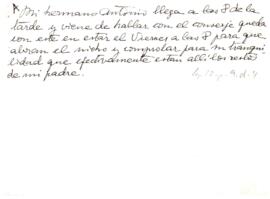 Mi hermano Antonio llega a las 8 de la
tarde y viene de hablar con el conserje queda
con este en estar el Viernes a las 8 para que
abran el nicho y comprobar para mi tranqui
lidad que efectivamente estan alli los restos
de mi padre.